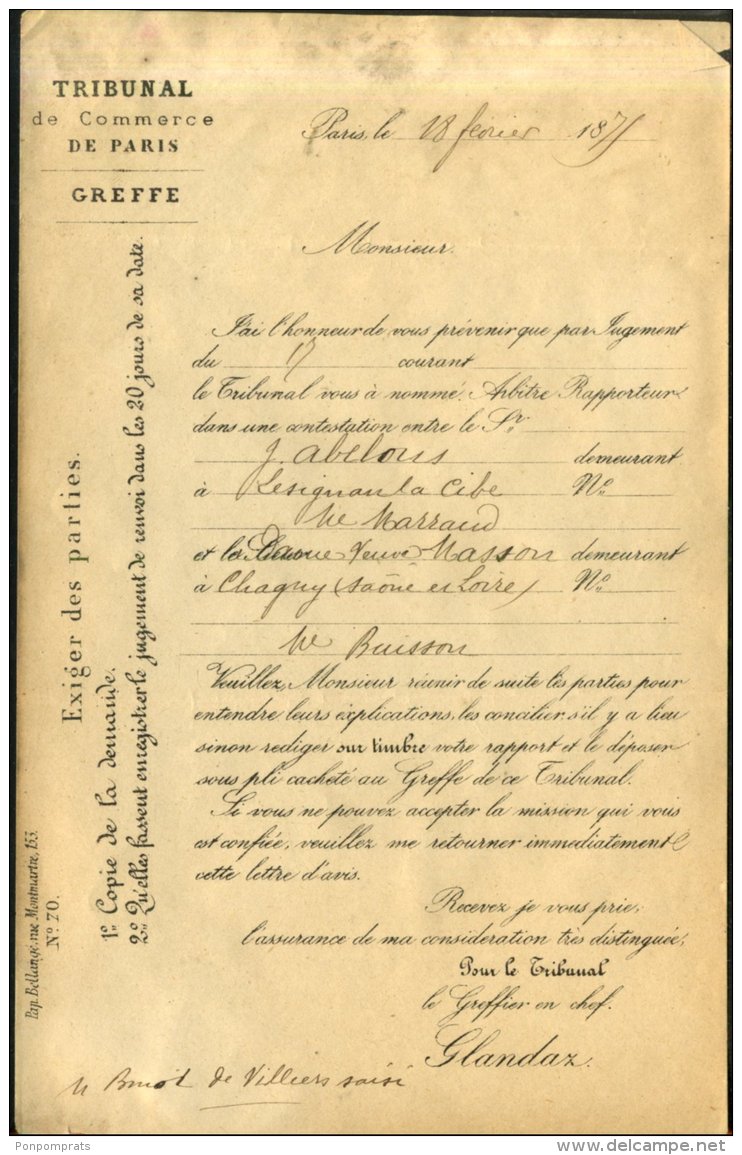 TRIBUNAL
de Commerce
DE PARIS
GREFFE
Paris, le 18 février 1875
Monsieur.
J'ai l'honneur de vous prévenir que par Jugement
du 17 courant
le Tribunal vous à nommé, Arbitre Rapporteur
dans une contestation entre le Sr.
J. Abelous demeurant
à Lesignan la Cibe No.
Me Marraud
et la Dame Veuve Masson demeurant
à Chagny (Saône et Loire) No.
Me Buisson
Veuillez, Monsieur réunir de suite les parties pour
entendre leurs explications, les concilier s'il y a lieu
sinon rediger sur timbre votre rapport et le déposer
sous pli cacheté au Greffe de ce Tribunal.
Si vous ne pouvez accepter la mission qui vous
est confiée, veuillez me retourner immédiatement
cette lettre d'avis.
Recevez je vous prie,
l'assurance de ma consideration très distinguée,
Pour le Tribunal
le Greffier en chef.
Glandaz.
de Villiers saisi
Exiger des parties.
1o. Copie de la demande.
2o. Qu'elles fassent enregistrer le jugement de renvoi dans les 20 jours de sa date.
Pap. Bellangé, rue Montmartre, 153.
No. 70.
Ponpomprats
www.delcampe.net